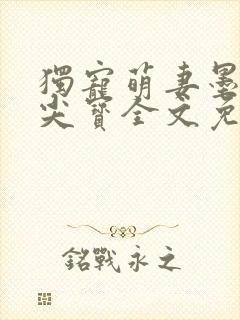 獨寵萌妻墨
尖寶全文免
銘戰永之